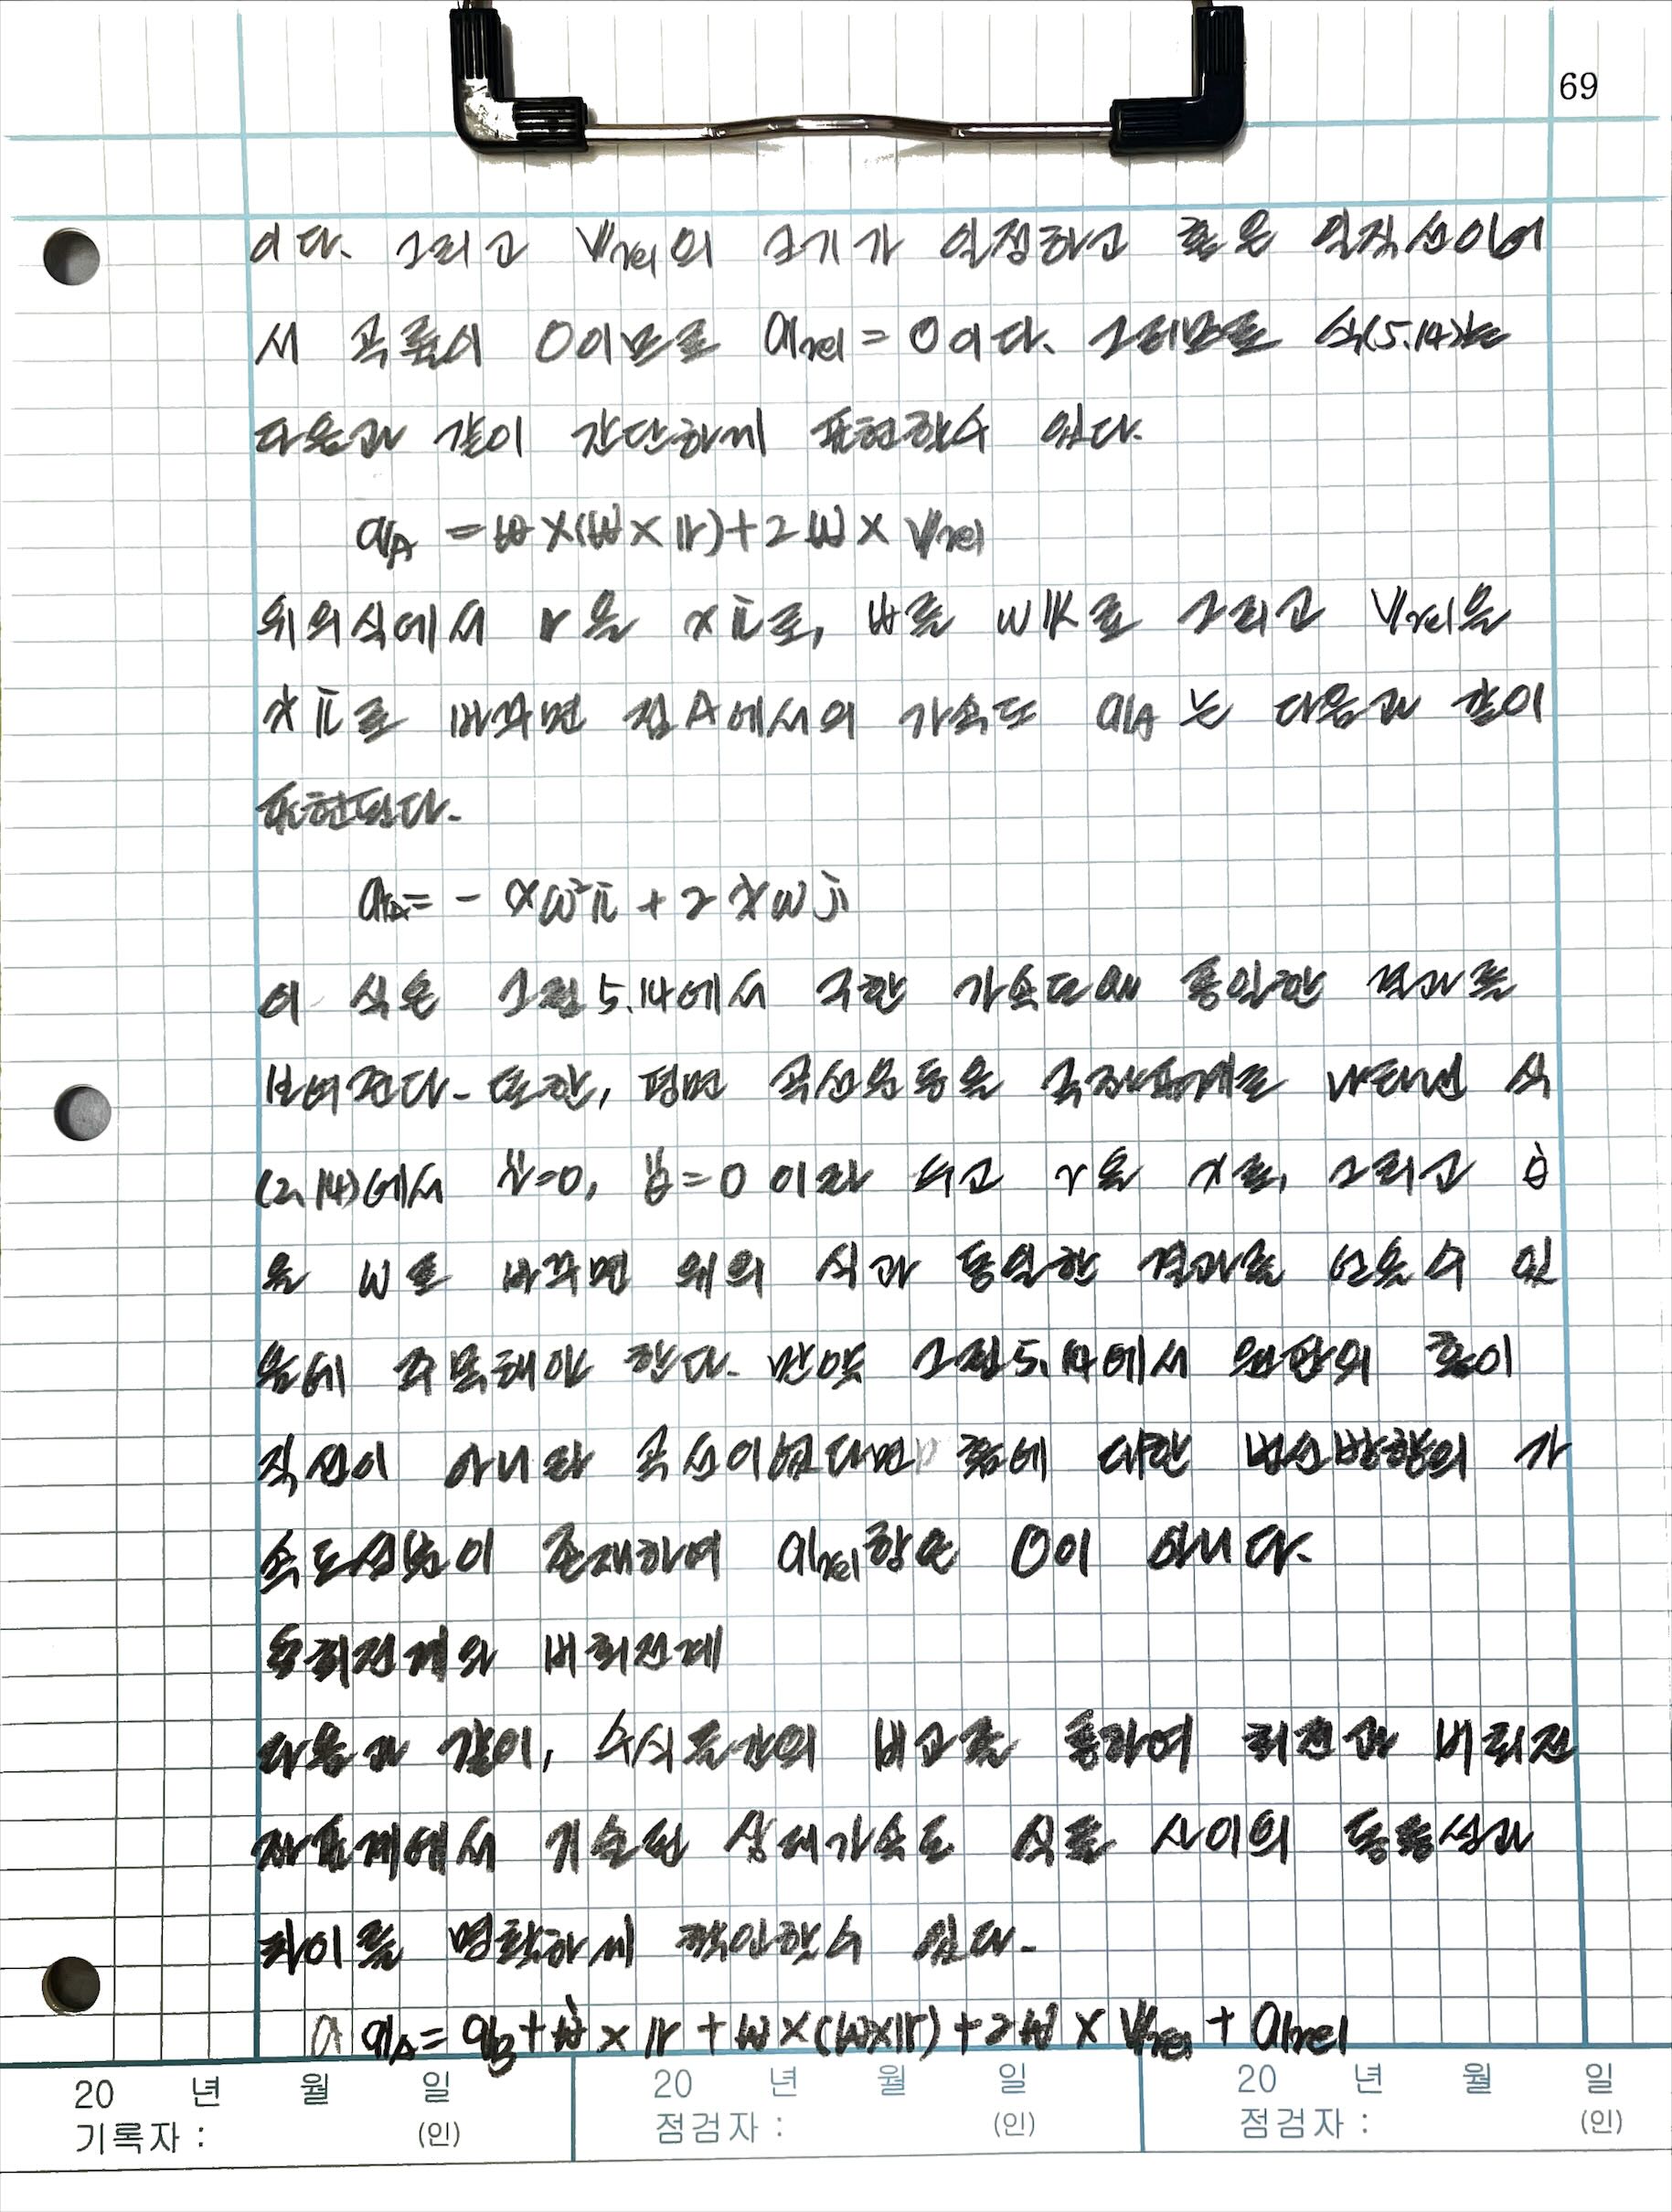 69
이다. 그리고 𝕧rel의 크기가 일정하고 홈은 일직선이어
서 곡률이 0이므로 𝕒rel = 0이다. 그러므로 식(5.14)는
다음과 같이 간단하게 표현할수 있다.
𝕒A = 𝕨×(𝕨×𝕣)+2𝕨×𝕧rel
위의식에서 r을 x𝕚로, 𝕨를 ω𝕜로 그리고 𝕧rel을
ẋ𝕚로 바꾸면 점A에서의 가속도 𝕒A는 다음과 같이
표현된다.
𝕒A= - xω²𝕚 + 2ẋω𝕛
이 식은 그림5.14에서 구한 가속도와 동일한 결과를
보여준다. 또한, 평면 곡선운동을 극좌표계로 나타낸 식
(2.14)에서 r̈=0, θ̈=0 이라 두고 r을 x로, 그리고 θ̇
을 ω로 바꾸면 위의 식과 동일한 결과를 얻을수 있
음에 주목해야 한다. 만약 그림5.14에서 원판의 홈이
직선이 아니라 곡선이었다면 홈에 대한 법선방향의 가
속도성분이 존재하여 𝕒rel항은 0이 아니다.
회전계와 비회전계
다음과 같이, 수식들간의 비교를 통하여 회전과 비회전
좌표계에서 기술된 상대가속도 식들 사이의 동등성과
차이를 명확하게 확인할수 있다.
a 𝕒A= 𝕒B+𝕨̇×𝕣+𝕨×(𝕨×𝕣)+2𝕨×𝕧rel+𝕒rel
20 년 월 일 20 년 월 일 20 년 월 일
기록자 : (인) 점검자 : (인) 점검자 : (인)